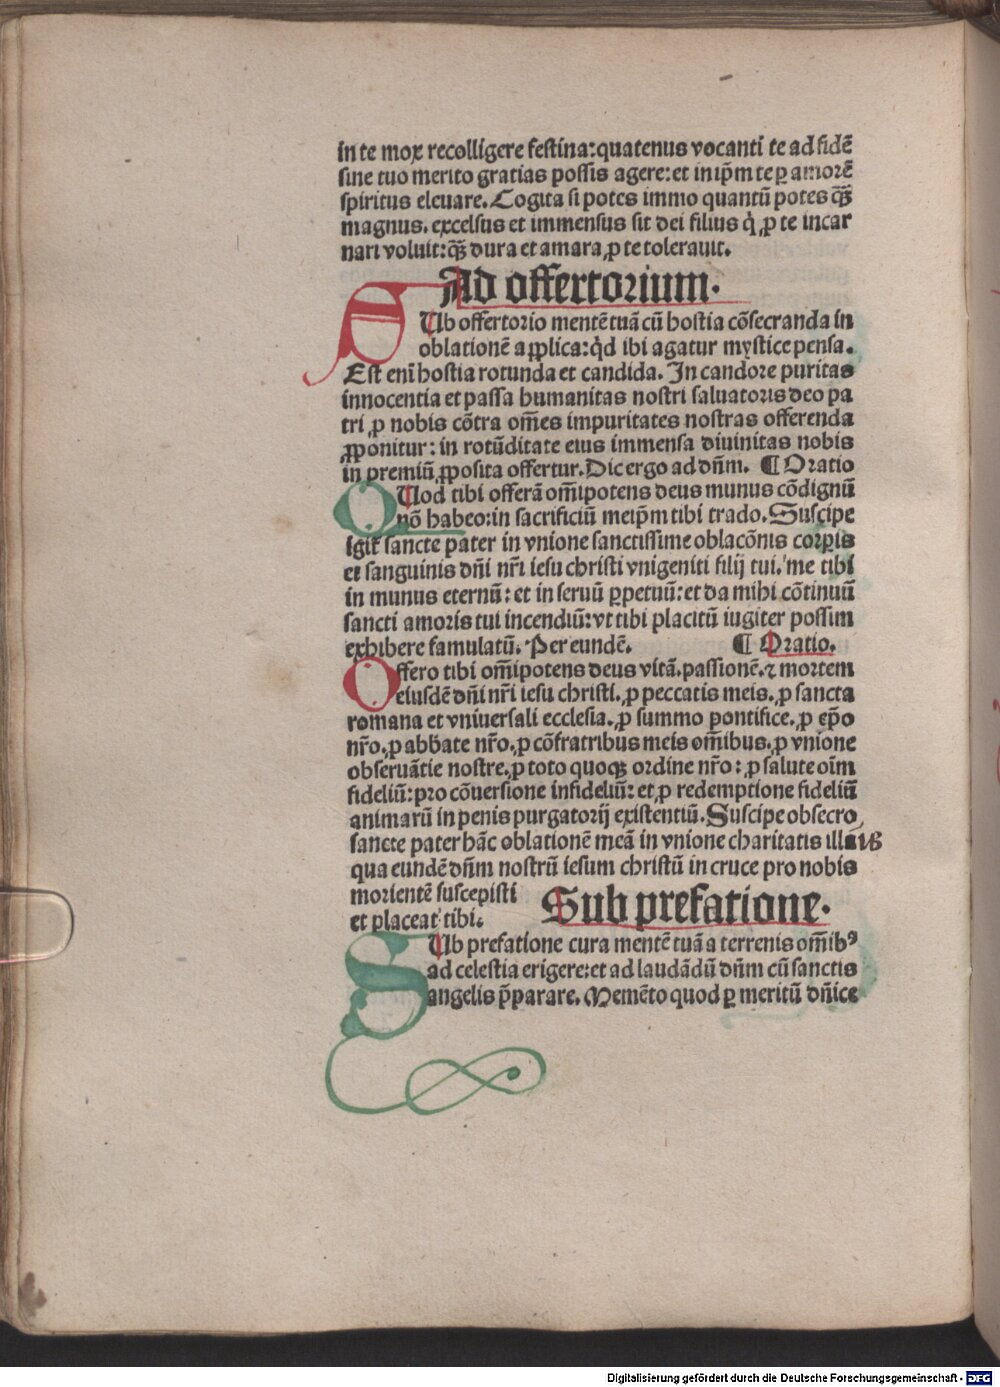 in te mox recolligere festina: quatenus vocanti te ad fidẽ
sine tuo merito gratias possis agere: et in ip̃m te ꝑ amorẽ
spiritus eleuare. Cogita si potes immo quantũ potes q̃ꝫ
magnus. excelsus et immensus sit dei filius q̇ ꝓ te incar
nari voluit: q̃ꝫ dura et amara ꝓ te tolerauit.
Ad offertorium.
SUb offertorio mentẽ tuã cũ hostia cõsecranda in
oblationẽ applica: q̇d ibi agatur mystice pensa.
Est em̃ hostia rotunda et candida. In candore puritas
innocentia et passa humanitas nostri saluatoris deo pa
tri ꝓ nobis cõtra om̃es impuritates nostras offerenda
ꝓponitur: in rotũditate eius immensa diuinitas nobis
in premiũ ꝓposita offertur. Dic ergo ad dñm. ¶ Oratio
QUod tibi offerã om̃ipotens deus munus cõdignũ
nõ habeo: in sacrificiũ meip̃m tibi trado. Suscipe
igit̃ sancte pater in vnione sanctissime oblacõnis corꝑis
et sanguinis dñi nr̃i iesu christi vnigeniti filij tui. me tibi
in munus eternũ: et in seruũ ꝑpetuũ: et da mihi cõtinuũ
sancti amoris tui incendiũ: vt tibi placitũ iugiter possim
exhibere famulatũ. Per eundẽ. ¶ Oratio.
Offero tibi om̃ipotens deus vitã. passionẽ. ⁊ mortem
eiusdẽ dñi nr̃i iesu christi. ꝓ peccatis meis. ꝓ sancta
romana et vniuersali ecclesia. ꝓ summo pontifice. ꝓ ep̃o
nr̃o. ꝓ abbate nr̃o. ꝓ cõfratribus meis om̃ibus. ꝓ vnione
obseruãtie nostre. ꝓ toto quoqꝫ ordine nr̃o: ꝓ salute oĩm
fideliũ: pro cõuersione infideliũ: et ꝓ redemptione fideliũ
animarũ in penis purgatorij existentiũ. Suscipe obsecro
sancte pater hãc oblationẽ meã in vnione charitatis illius
qua eundẽ dñm nostrũ iesum christũ in cruce pro nobis
morientẽ suscepisti
et placeat tibi.
Sub prefatione.
SUb prefatione cura mentẽ tuã a terrenis om̃ibꝰ
ad celestia erigere: et ad laudãdũ dñm cũ sanctis
angelis p̃parare. Memẽto quod ꝑ meritũ dñice
Digitalisierung gefördert durch die Deutsche Forschungsgemeinschaft - DFG